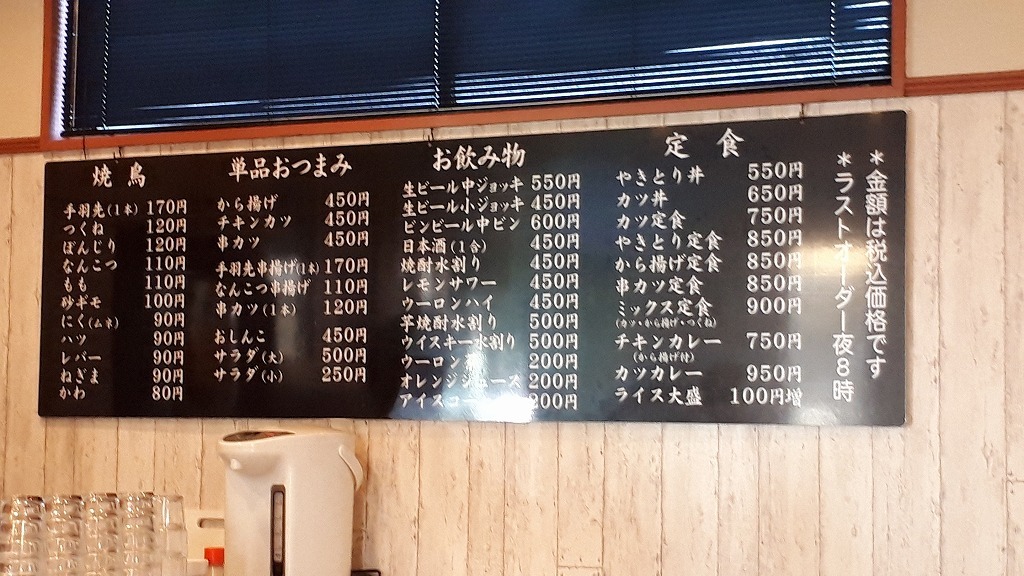 焼鳥
手羽先(1本) 170円
つくね 120円
ぼんじり 120円
なんこつ 110円
もも 110円
砂ギモ 100円
にく(ムネ) 90円
ハツ 90円
レバー 90円
ねぎま 90円
かわ 80円
単品おつまみ
から揚げ 450円
チキンカツ 450円
串カツ 450円
手羽先串揚げ(1本) 170円
なんこつ串揚げ 110円
串カツ(1本) 120円
おしんこ 450円
サラダ(大) 500円
サラダ(小) 250円
お飲み物
生ビール中ジョッキ 550円
生ビール小ジョッキ 450円
ビンビール中ビン 600円
日本酒(1合) 450円
焼酎水割り 450円
レモンサワー 450円
ウーロンハイ 450円
芋焼酎水割り 500円
ウイスキー水割り 500円
ウーロン茶 200円
オレンジジュース 200円
アイスコーヒー 200円
定食
やきとり丼 550円
カツ丼 650円
カツ定食 750円
やきとり定食 850円
から揚げ定食 850円
串カツ定食 850円
ミックス定食 900円
(カツ・から揚げ・つくね)
チキンカレー 750円
(から揚げ付)
カツカレー 950円
ライス大盛 100円増
*金額は税込価格です
*ラストオーダー夜8時